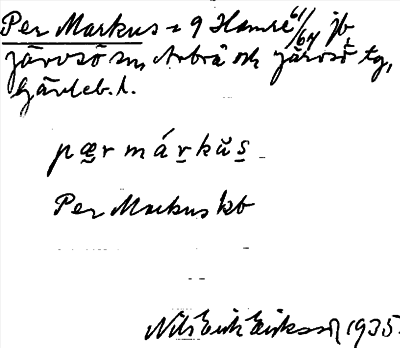 Per Markus = 9 Hamre 61/64 jb,
Järvsö sn, Arbrå och Järvsö tg,
Gävleb. l.
pær márkŭs
Per Markus kb
Nils Erik Eriksson 1935.